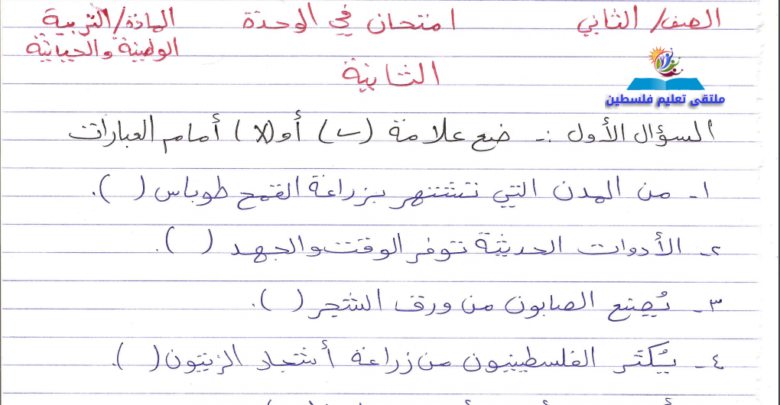 الصف/ الثاني امتحان في الوحدة المادة/التربية
الثانية الوطنية والحياتية
ملتقى تعليم فلسطين
السؤال الأول :- ضع علامة (✓) أو (X) أمام العبارات
١- من المدن التي تشتهر بزراعة القمح طوباس ( ).
٢- الأدوات الحديثة توفر الوقت والجهد ( ).
٣- يُصنع الصابون من ورق الشجر ( ).
٤- يُكثر الفلسطينيون من زراعة أشجار الزيتون ( ).